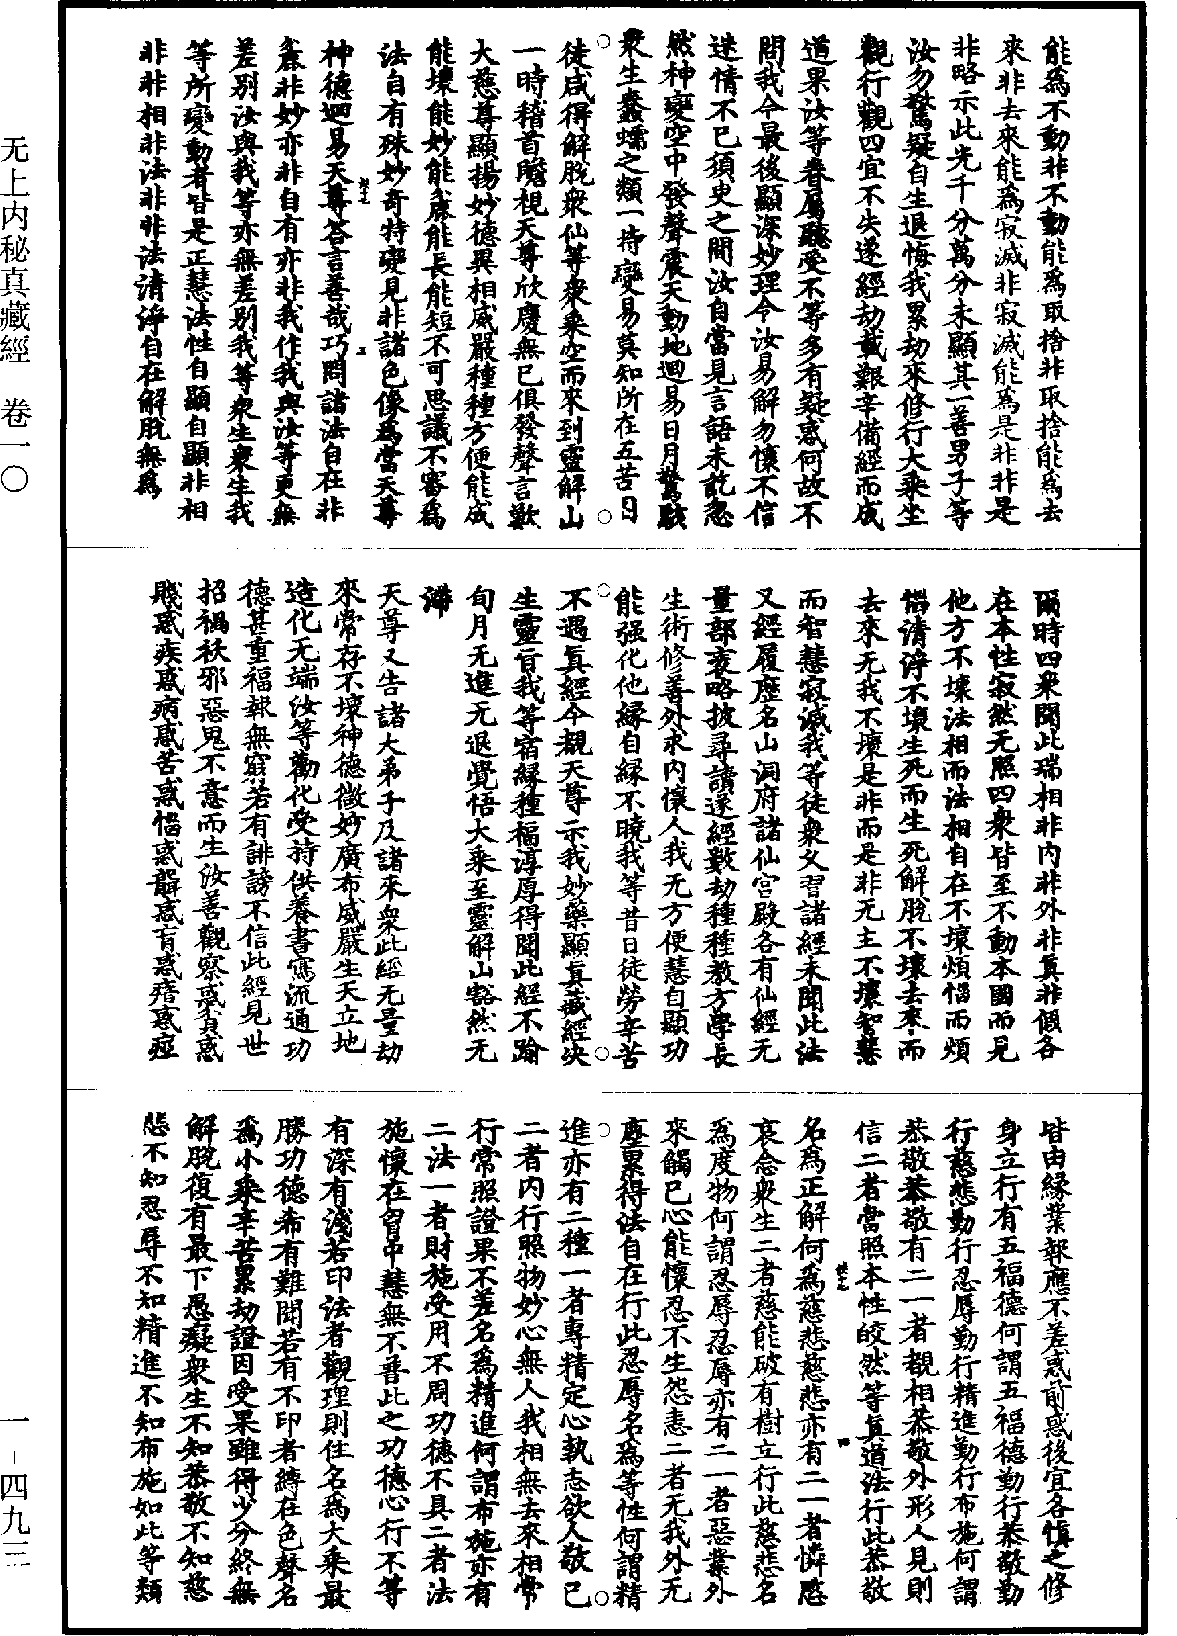 能爲不動非不動能爲取捨非取捨能爲去
來非去來能爲寂滅非寂滅能爲是非非是
非略示此光千分萬分未顯其一善男子等
汝勿驚疑自生退悔我累劫來修行大乘坐
觀行觀四宜不失遂經劫載艱辛備經而成
道果汝等眷屬聽受不等多有疑惑何故不
問我今最後顯深妙理令汝易解勿懷不信
迷情不已須臾之間汝自當見言語未訖忽
然神變空中發聲震天動地迴易日月驚駭
衆生蠢蠕之類一時變易莫知所在五苦日
徒咸得解脫衆仙等衆乘空而來到靈解山
一時稽首瞻視天尊欣慶無已俱發聲言歎
大慈尊顯揚妙德異相威嚴種種方便能成
能壞能妙能麁能長能短不可思議不審爲
法自有殊妙奇特變見非諸色像爲當天尊
神德迴易天尊答言善哉巧問諸法自在非
麁非妙亦非自有亦非我作我與汝等更無
差別汝與我等亦無差別我等衆生衆生我
等所變動者皆是正慧法性自顯自顯非相
非非相非法非非法清淨自在解脫無爲
爾時四衆聞此瑞相非內非外非真非假各
在本性寂然无照四衆皆至不動本國而見
他方不壞法相而法相自在不壞煩惱而煩
惱清淨不壞生死而生死解脫不壞去來而
去來无我不壞是非而是非无主不壞智慧
而智慧寂滅我等徒衆久習諸經未聞此法
又經履歷名山洞府諸仙宮殿各有仙經无
量部袠略披尋讀遂經數劫種種教方學長
生術修善外求內懷人我无方便慧自顯功
能强化他緣自緣不曉我等昔日徒勞辛苦
不遇真經今覩天尊示我妙藥顯真藏經決
生靈旨我等宿緣種福淳厚得聞此經不踰
旬月无進无退覺悟大乘至靈解山豁然无
滯
天尊又告諸大弟子及諸來衆此經无量劫
來常存不壞神德微妙廣布威嚴生天立地
造化无端汝等勸化受持供養書寫流通功
德甚重福報無窮若有誹謗不信此經見世
招禍袄邪惡鬼不意而生汝善觀察惑貧惑
賤惑疾惑病惑苦惑惱惑聾惑盲惑瘖惑痙
皆由緣業報應不差惑前惑後宜各慎之修
身立行有五福德何謂五福德勤行恭敬勤
行慈悲勤行忍辱勤行精進勤行布施何謂
恭敬恭敬有二一者覩相恭敬外形人見則
信二者當照本性皎然等真道法行此恭敬
名爲正解何爲慈悲慈悲亦有二一者憐愍
哀念衆生二者慈能破有樹立行此慈悲名
爲度物何謂忍辱忍辱亦有二一者惡業外
來觸已心能懷忍不生怨恚二者无我外无
塵累得法自在行此忍辱名爲等性何謂精
進亦有二種一者專精定心執志欲人敬已
二者內行照物妙心無人我相無去來相常
行常照證果不差名爲精進何謂布施亦有
二法一者財施受用不周功德不具二者法
施懷在胷中慧無不普此之功德心行不等
有深有淺若印法者觀理則住名爲大乘最
勝功德希有難聞若有不印者縛在色聲名
爲小乘辛苦累劫證因受果雖得少分終無
解脫復有最下愚癡衆生不知恭敬不知慈
悲不知忍辱不知精進不知布施如此等類
无上内秘真藏經　卷一〇
一－四九三